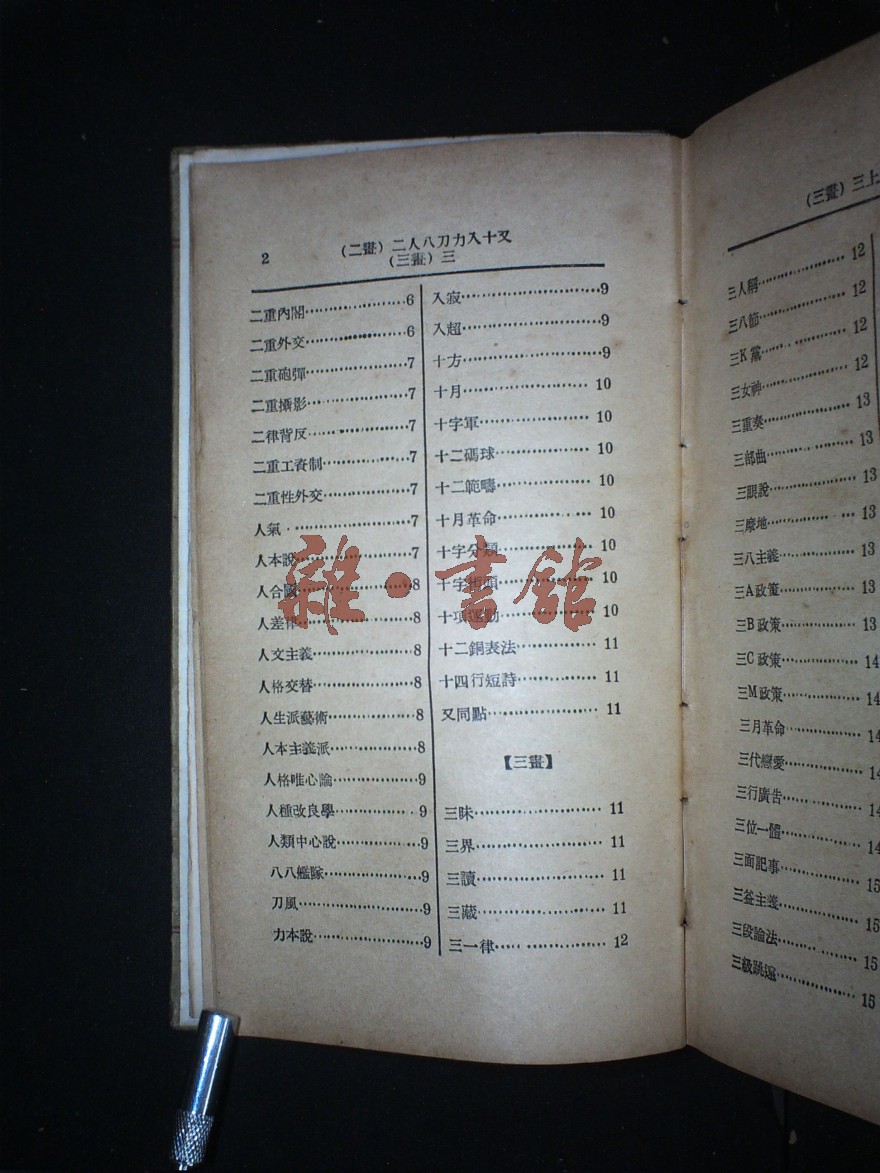 2
（二畫）二人八刀力入十又
（三畫）三
二重內閣 6
二重外交 6
二重砲彈 7
二重攝影 7
二律背反 7
二重工資制 7
二重性外交 7
人氣 7
人本說 7
人合國 8
人差律 8
人文主義 8
人格交替 8
人生派藝術 8
人本主義派 8
人格唯心論 9
人種改良學 9
人類中心說 9
八八艦隊 9
刀風 9
力本說 9
入寂 9
入超 9
十方 9
十月 10
十字軍 10
十二碼球 10
十二範疇 10
十月革命 10
十字分類 10
十字街頭 10
十項運動 10
十二銅表法 11
十四行短詩 11
又同點 11
【三畫】
三昧 11
三界 11
三讀 11
三藏 11
三一律 12
（三畫）三上
三人稱 12
三八節 12
三K黨 12
三女神 12
三重奏 13
三部曲 13
三眼說 13
三摩地 13
三八主義 13
三A政策 13
三B政策 13
三C政策 14
三M政策 14
三月革命 14
三代戀愛 14
三行廣告 14
三位一體 14
三面記事 15
三益主義 15
三段論法 15
三級跳遠 15
雜·書館